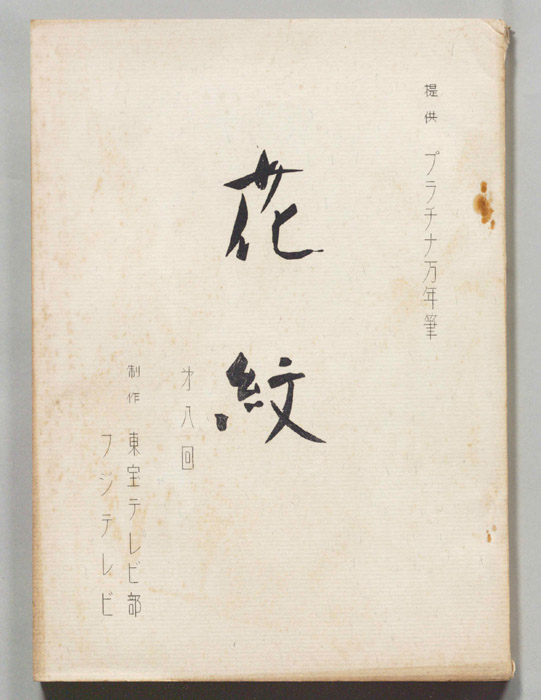 提供 プラチナ万年筆
花紋
才八回
制作 東宝テレビ部
フジテレビ